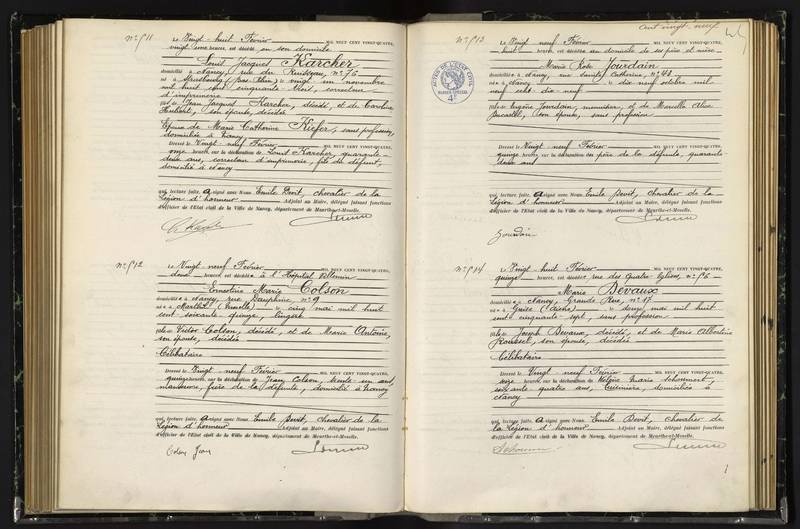 N° 511
Le Vingt-huit Février MIL NEUF CENT VINGT-QUATRE,
vingt une heures, est décédé en son domicile
Louis Jacques Karcher
domicilié à Nancy, rue du Ruisseau, n° 76
né à Strasbourg (Bas-Rhin) le vingt un novembre
mil huit cent cinquante trois, correcteur
d'imprimerie
fils de Jean Jacques Karcher, décédé, et de Caroline
son épouse, décédée
Epoux de Marie Catherine Kiefer, sans profession,
domiciliée à Nancy
Dressé le Vingt-neuf Février
onze heures, sur la déclaration de Louis Karcher, quarante
deux ans, correcteur d'imprimerie, fils du défunt,
domicilié à Nancy
qui, lecture faite, a signé avec Nous Emile Devit, chevalier de la
Légion d'honneur Adjoint au Maire, délégué faisant fonctions
d'officier de l'Etat civil de la Ville de Nancy, département de Meurthe-et-Moselle.
N° 512
Le Vingt-neuf Février MIL NEUF CENT VINGT-QUATRE,
douze heures, est décédée à l'Hôpital Villemin
Ernestine Marie Colson
domiciliée à Nancy, rue Dauphine, n° 9
née à (Moselle) le cinq mai mil huit
cent soixante quinze, lingère
fille de Victor Colson, décédé, et de Marie Antoine,
son épouse, décédée
Célibataire
Dressé le Vingt-neuf Février
quinze heures, sur la déclaration de Jean Colson, trente un ans,
frère de la défunte, domicilié à Nancy
qui, lecture faite, a signé avec Nous Emile Devit, chevalier de la
Légion d'honneur Adjoint au Maire, délégué faisant fonctions
d'officier de l'Etat civil de la Ville de Nancy, département de Meurthe-et-Moselle.
Colson Jean
cent vingt-neuf
N° 513
Le Vingt neuf Février MIL NEUF CENT VINGT-QUATRE,
huit heures, est décédée au domicile de ses père et mère
Marie Rose Jourdain
domiciliée à Nancy, rue Sainte Catherine, n° 48
née à Nancy le dix neuf octobre mil
neuf cent dix neuf
fille de Eugène Jourdain, menuisier, et de Marcelle Alice
son épouse, sans profession
Dressé le Vingt-neuf Février
quinze heures, sur la déclaration du père de la défunte, quarante
deux ans
qui, lecture faite, a signé avec Nous Emile Devit, chevalier de la
Légion d'honneur Adjoint au Maire, délégué faisant fonctions
d'officier de l'Etat civil de la Ville de Nancy, département de Meurthe-et-Moselle.
Jourdain
N° 514
Le Vingt-huit Février MIL NEUF CENT VINGT-QUATRE,
quinze heures, est décédée rue des Quatre Eglises, n° 75
Marie Devaux
domiciliée à Nancy, Grande Rue, n° 17
née à Guise (Aisne) le douze mai mil huit
cent cinquante sept, sans profession
fille de Joseph Devaux, décédé, et de Marie Albertine
son épouse, décédée
Célibataire
Dressé le Vingt neuf Février
seize heures, sur la déclaration de Marie
soixante quatre ans, domiciliée à
Nancy
qui, lecture faite, a signé avec Nous Emile Devit, chevalier de
la Légion d'honneur Adjoint au Maire, délégué faisant fonctions
d'officier de l'Etat civil de la Ville de Nancy, département de Meurthe-et-Moselle.